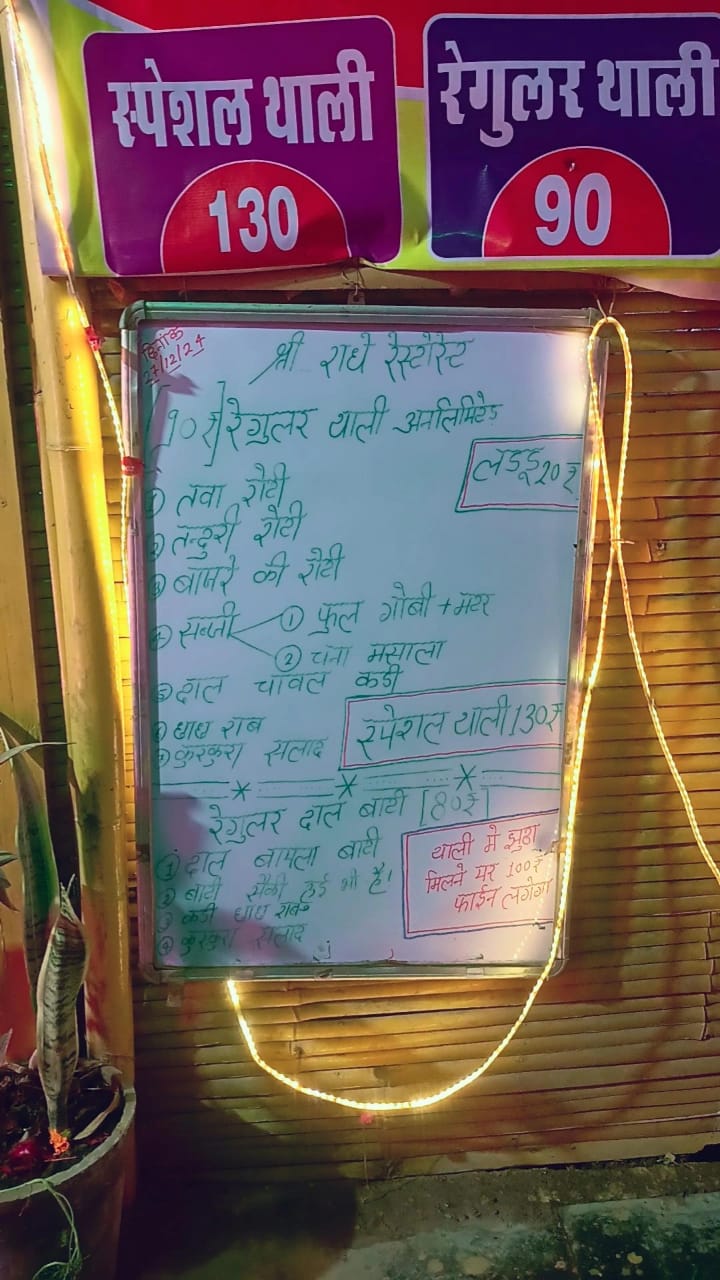 स्पेशल थाली
130
रेगुलर थाली
90
दिनांक
27/12/24
श्री राधे रेस्टोरेंट
[90₹] रेगुलर थाली अनलिमिटेड
लडडू 20₹
① तवा रोटी
② तन्दुरी रोटी
③ बाजरे की रोटी
④ सब्जी ① फुल गोबी + मटर
② चना मसाला
⑤ दाल चावल कडी
⑥ छाछ राब
⑦ कुरकुरा सलाद
स्पेशल थाली 130₹
रेगुलर दाल बाटी [80₹]
① दाल बाफला बाटी
② बाटी सेकी हुई भी है।
③ कडी छाछ राब
④ कुरकुरा सलाद
थाली मे झुठा
मिलने पर 100₹
फाईन लगेगा